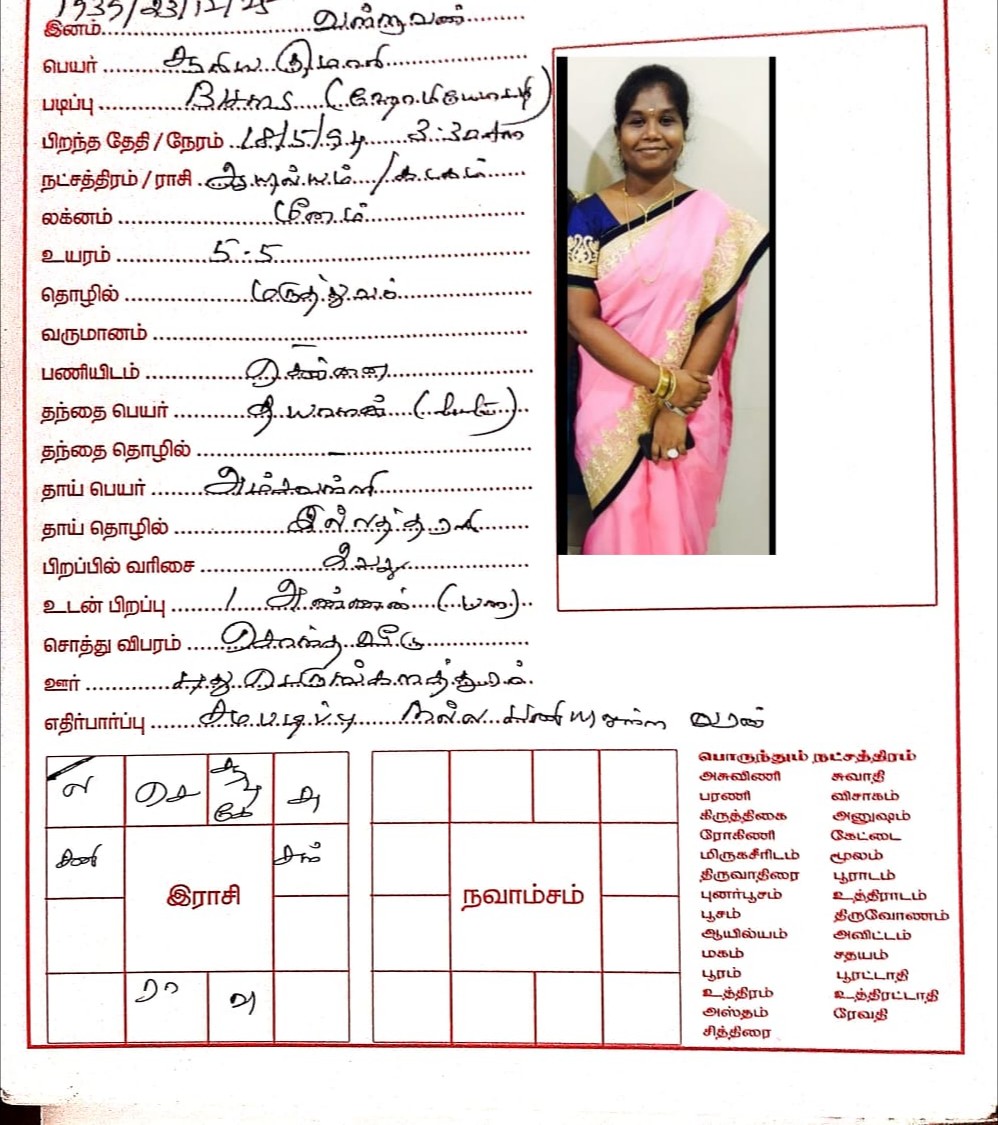 1939/23/12/25
இனம் வள்ளுவன்
பெயர்
படிப்பு BHMS (ஹோமியோபதி)
பிறந்த தேதி / நேரம் 18/5/94 3.30am
நட்சத்திரம் / ராசி ஆயில்யம் / கடகம்
லக்னம் மீனம்
உயரம் 5.5
தொழில் மருத்துவர்
வருமானம் –
பணியிடம் சென்னை
தந்தை பெயர் தியாகராஜன் (லேட்)
தந்தை தொழில் –
தாய் பெயர் அம்சவல்லி
தாய் தொழில் இல்லத்தரசி
பிறப்பில் வரிசை 2வது
உடன் பிறப்பு 1 அண்ணன் (மண)
சொத்து விபரம் சொந்த வீடு
ஊர் புது பெருங்களத்தூர்
எதிர்பார்ப்பு நல்ல பணியுள்ள வரன்
ல செ சூ கே சு
சனி இராசி சந் நவாம்சம்
ரா வு
பொருந்தும் நட்சத்திரம்
அசுவிணி சுவாதி
பரணி விசாகம்
கிருத்திகை அனுஷம்
ரோகிணி கேட்டை
மிருகசீரிடம் மூலம்
திருவாதிரை பூராடம்
புனர்பூசம் உத்திராடம்
பூசம் திருவோணம்
ஆயில்யம் அவிட்டம்
மகம் சதயம்
பூரம் பூரட்டாதி
உத்திரம் உத்திரட்டாதி
அஸ்தம் ரேவதி
சித்திரை